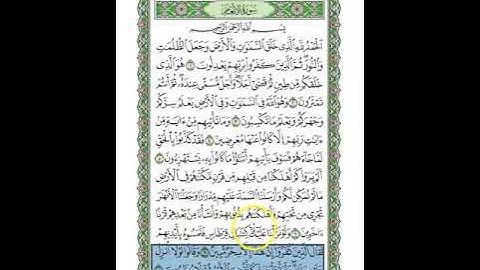 سورة الأنعام
بسم الله الرحمن الرحيم
الحمد لله الذي خلق السموات والأرض وجعل الظلمت
والنور ثم الذين كفروا بربهم يعدلون ١ هو الذي
خلقكم من طين ثم قضى أجلا وأجل مسمى عنده ثم أنتم
تمترون ٢ وهو الله في السموت وفي الأرض يعلم سركم
وجهركم ويعلم ما تكسبون ٣ وما تأتيهم من ءاية من
ءايت ربهم إلا كانوا عنها معرضين ٤ فقد كذبوا بالحق
لما جاءهم فسوف يأتيهم أنبؤا ما كانوا به يستهزءون ٥
ألم يروا كم أهلكنا من قبلهم من قرن مكنهم في الأرض
ما لم نمكن لكم وأرسلنا السماء عليهم مدرارا وجعلنا الأنهر
تجري من تحتهم فأهلكنهم بذنوبهم وأنشأنا من بعدهم قرنا
ءاخرين ٦ ولو نزلنا عليك كتبا في قرطاس فلمسوه بأيديهم
لقال الذين كفروا إن هذا إلا سحر مبين ٧ وقالوا لولا أنزل